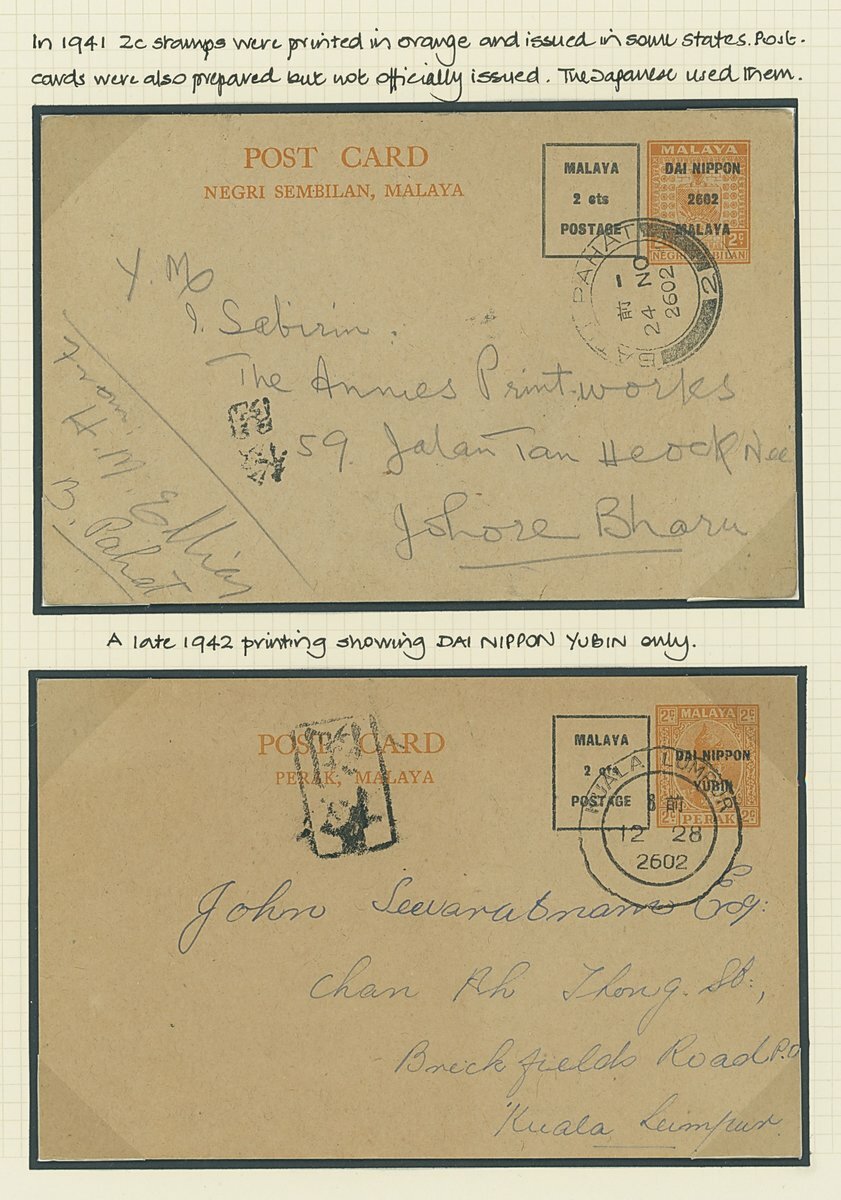 In 1941 2c stamps were printed in orange and issued in some states. Post-
cards were also prepared but not officially issued. The Japanese used them.
POST CARD
NEGRI SEMBILAN, MALAYA
MALAYA
2 cts
POSTAGE
MALAYA
DAI NIPPON
2602
MALAYA
2c
NEGRI SEMBILAN
PAHAT
前
24 NO
2602
2
I. Sabirin.
The Annies Printworks
59. Jalan Tan Heock Nee
Johore Bharu
From
H. M. Ellias
B. Pahat
A late 1942 printing showing DAI NIPPON YUBIN only.
POST CARD
PERAK, MALAYA
MALAYA
2 cts
POSTAGE
2c MALAYA 2c
DAI NIPPON
YUBIN
2c PERAK 2c
KUALA LUMPUR
8 前
12 28
2602
John Sevaratnam Esq:
Chan Ah Thong. St.,
Brickfields Road P.O
Kuala Lumpur.